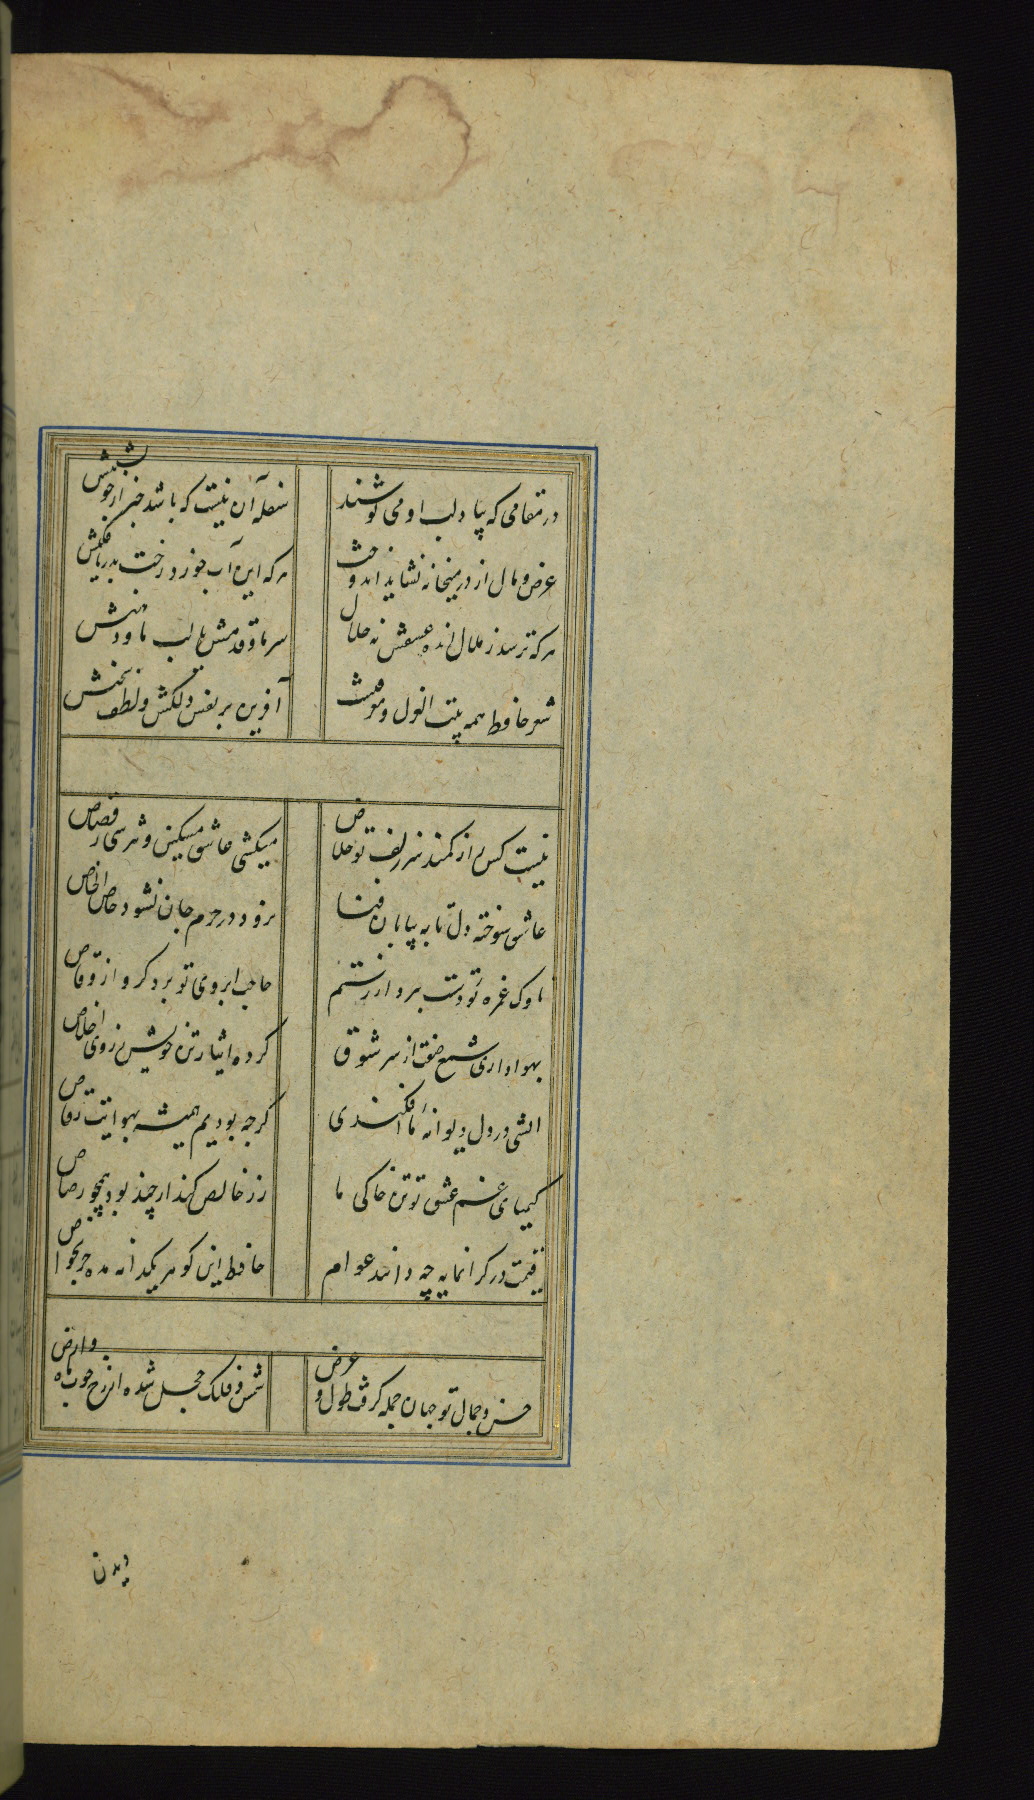 در مقامی که بیاد لب او می نوشند سفله آن نیست که باشد خبر از خویشتنش
عرض و مال از در میخانه نشاید اندوخت هرکه این آب خورد رخت بدریا فکنش
هرکه ترسد ز ملال انده عشقش نه حلال سر ما و قدمش یا لب ما و دهنش
شعر حافظ همه بیت الغزل معرفتست آفرین بر نفس دلکش و لطف سخنش
نیست کس از کمند سر زلف تو خلاص میکشی عاشق مسکین و نترسی ز قصاص
عاشق سوخته دل تا به بیابان فنا نرود در حرم جان نشود خاص الخاص
ناوک غمزه تو دست ببرد از رستم حاجب ابروی تو برد کرو از وقاص
بهواداری شمع از سر شوق کرده ایثار تن خویش ز روی اخلاص
اتشی در دل دیوانه ما افکندی کرجه بودیم همیشه بهوایت رقاص
کیمیای غم عشق تو تن خاکی ما زر خالص کند ار چند بود همچو رصاص
قیمت در کرانمایه چه دانند عوام حافظ این کوهر یکدانه مده جز بخواص
حسن و جمال تو جهان جمله کرفت طول و عرض شمس فلک خجل شده از رخ خوب ماه ارض
دیدن